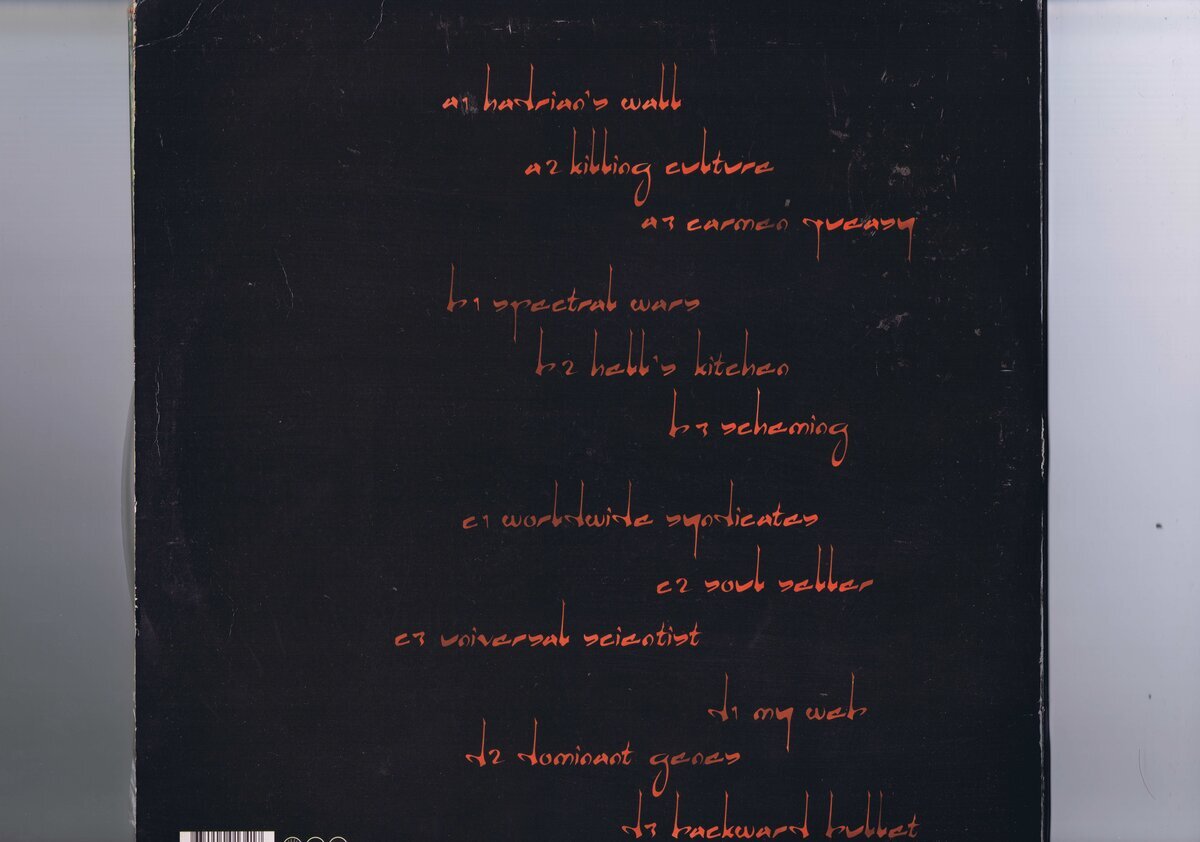 a1 hadrian's wall
a2 killing culture
a3 carmen queasy
b1 spectral wars
b2 hell's kitchen
b3 scheming
c1 worldwide syndicates
c2 soul seller
c3 universal scientist
d1 my web
d2 dominant genes
d3 backward bullet